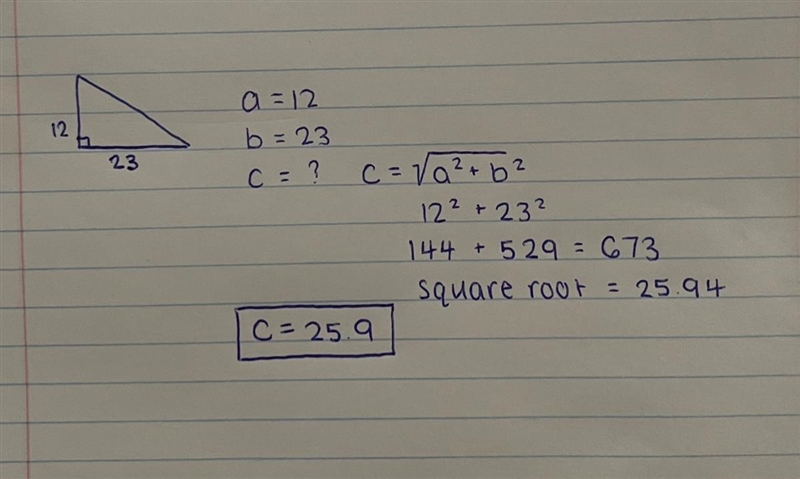 12
23
a = 12
b = 23
c = ? c = √a² + b²
12² + 23²
144 + 529 = 673
square root = 25.94
c = 25.9